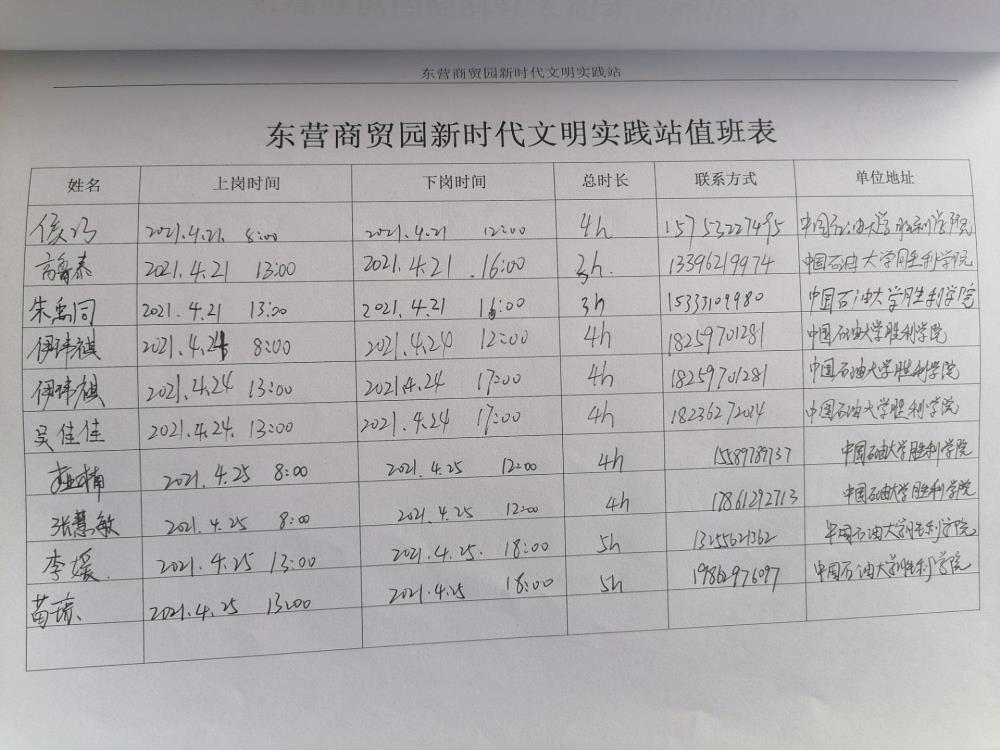 东营商贸园新时代文明实践站
东营商贸园新时代文明实践站值班表
姓名 上岗时间 下岗时间 总时长 联系方式 单位地址
2021.4.21 8:00 2021.4.21 12:00 4h 15753227495 中国石油大学胜利学院
高鲁泰 2021.4.21 13:00 2021.4.21 16:00 3h 13396219974 中国石油大学胜利学院
朱禹同 2021.4.21 13:00 2021.4.21 16:00 3h 15333109980 中国石油大学胜利学院
伊玮祺 2021.4.24 8:00 2021.4.24 12:00 4h 18259701281 中国石油大学胜利学院
伊玮祺 2021.4.24 13:00 2021.4.24 17:00 4h 18259701281 中国石油大学胜利学院
吴佳佳 2021.4.24. 13:00 2021.4.24 17:00 4h 18236272014 中国石油大学胜利学院
2021.4.25 8:00 2021.4.25 12:00 4h 15589789737 中国石油大学胜利学院
张慧敏 2021.4.25 8:00 2021.4.25 12:00 4h 17861292713 中国石油大学胜利学院
李媛 2021.4.25 13:00 2021.4.25. 18:00 5h 13255621362 中国石油大学胜利学院
苗琼 2021.4.25 13:00 2021.4.25 18:00 5h 19862976097 中国石油大学胜利学院